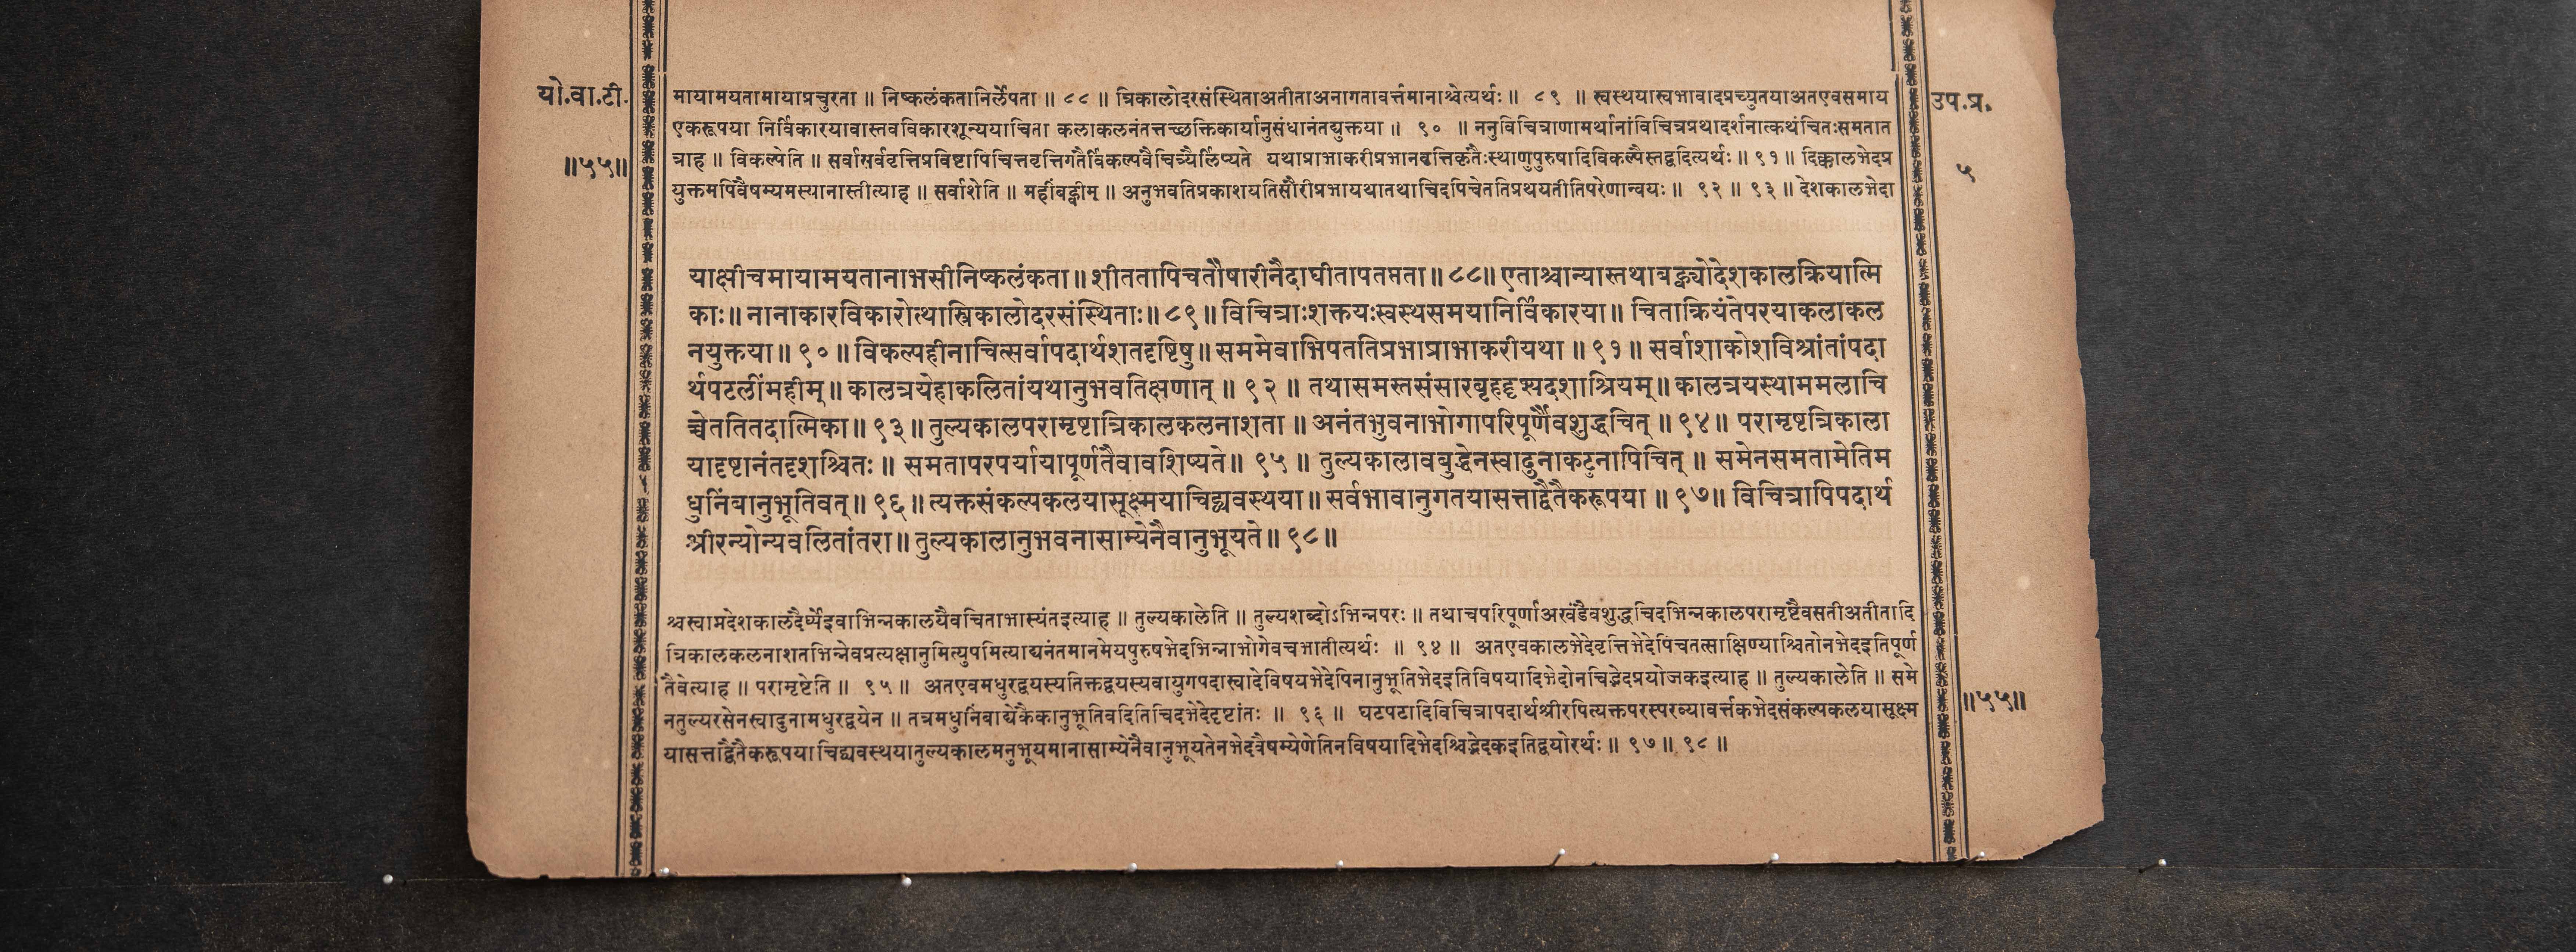 यो.वा.टी.
॥५५॥
उप.प्र.
५
मायामयतामायाप्रचुरता ॥ निष्कलंकतानिर्लेपता ॥ ८८ ॥ त्रिकालोदरसंस्थिताअतीताअनागतावर्त्तमानाश्चेत्यर्थः ॥ ८९ ॥ स्वस्थयास्वभावादप्रच्युतयाअतएवसमाय
एकरूपया निर्विकारयावास्तवविकारशून्ययाचिता कलाकलनंतत्तच्छक्तिकार्यानुसंधानंतद्युक्तया ॥ ९० ॥ ननुविचित्राणामर्थानांविचित्रप्रथादर्शनात्कथंचितःसमतात
त्राह ॥ विकल्पेति ॥ सर्वासर्ववृत्तिप्रविष्टापिचित्तवृत्तिगतैर्विकल्पवैचित्र्यैर्लिप्यते यथाप्राभाकरीप्रभानवृत्तिकृतैःस्थाणुपुरुषादिविकल्पैस्तद्वदित्यर्थः ॥ ९१ ॥ दिक्कालभेदप्र
युक्तमपिवैषम्यमस्यानास्तीत्याह ॥ सर्वाशेति ॥ महींबह्वीम् ॥ अनुभवतिप्रकाशयतिसौरीप्रभायथातथाचिदपिचेततिप्रथयतीतिपरेणान्वयः ॥ ९२ ॥ ९३ ॥ देशकालभेदा
याक्षीचमायामयतानाभसीनिष्कलंकता ॥ शीततापिचतौषारीनैदाघीतापतप्तता ॥ ८८ ॥ एताश्चान्यास्तथाबह्व्योदेशकालक्रियात्मि
काः ॥ नानाकारविकारोत्थास्त्रिकालोदरसंस्थिताः ॥ ८९ ॥ विचित्राःशक्तयःस्वस्थसमयानिर्विकारया ॥ चिताक्रियंतेपरयाकलाकल
नयुक्तया ॥ ९० ॥ विकल्पहीनाचित्सर्वापदार्थशतदृष्टिषु ॥ सममेवाभिपततिप्रभाप्राभाकरीयथा ॥ ९१ ॥ सर्वाशाकोशविश्रांतांपदा
र्थपटलींमहीम् ॥ कालत्रयेहाकलितांयथानुभवतिक्षणात् ॥ ९२ ॥ तथासमस्तसंसारबृहद्दृश्यदशाश्रियम् ॥ कालत्रयस्थाममलाचि
च्चेततितदात्मिका ॥ ९३ ॥ तुल्यकालपरामृष्टात्रिकालकलनाशता ॥ अनंतभुवनाभोगापरिपूर्णैवशुद्धचित् ॥ ९४ ॥ परामृष्टत्रिकाला
यादृष्टानंतदृशश्चितः ॥ समतापरपर्यायापूर्णतैवावशिष्यते ॥ ९५ ॥ तुल्यकालावबुद्धेनस्वादुनाकटुनापिचित् ॥ समेनसमतामेतिम
धुनिंबानुभूतिवत् ॥ ९६ ॥ त्यक्तसंकल्पकलयासूक्ष्मयाचिद्व्यवस्थया ॥ सर्वभावानुगतयासत्ताद्वैतैकरूपया ॥ ९७ ॥ विचित्रापिपदार्थ
श्रीरन्योन्यवलितांतरा ॥ तुल्यकालानुभवनासाम्येनैवानुभूयते ॥ ९८ ॥
श्चस्वामदेशकालदैर्घ्येइवाभिन्नकालयैवचिताभास्यंतइत्याह ॥ तुल्यकालेति ॥ तुल्यशब्दोऽभिन्नपरः ॥ तथाचपरिपूर्णाअखंडैवशुद्धचिदभिन्नकालपरामृष्टैवसतीअतीतादि
त्रिकालकलनाशतभिन्नेवप्रत्यक्षानुमित्युपमित्याद्यनंतमानमेयपुरुषभेदभिन्नाभोगेवचभातीत्यर्थः ॥ ९४ ॥ अतएवकालभेदेवृत्तिभेदेपिचतत्साक्षिण्याश्चितोनभेदइतिपूर्ण
तैवेत्याह ॥ परामृष्टेति ॥ ९५ ॥ अतएवमधुरद्वयस्यतिक्तद्वयस्यवायुगपदास्वादेविषयभेदेपिनानुभूतिभेदइतिविषयादिभेदोनचिद्भेदप्रयोजकइत्याह ॥ तुल्यकालेति ॥ समे
नतुल्यरसेनस्वादुनामधुरद्वयेन ॥ तत्रमधुनिंबाद्येकैकानुभूतिवदितिचिदभेदेदृष्टांतः ॥ ९६ ॥ घटपटादिविचित्रापदार्थश्रीरपित्यक्तपरस्परव्यावर्त्तकभेदसंकल्पकलयासूक्ष्म
यासत्ताद्वैतैकरूपया चिद्व्यवस्थयातुल्यकालमनुभूयमानासाम्येनैवानुभूयतेनभेदवैषम्येणेतिनविषयादिभेदश्चिद्भेदकइतिद्वयोरर्थः ॥ ९७ ॥ ९८ ॥
॥५५॥